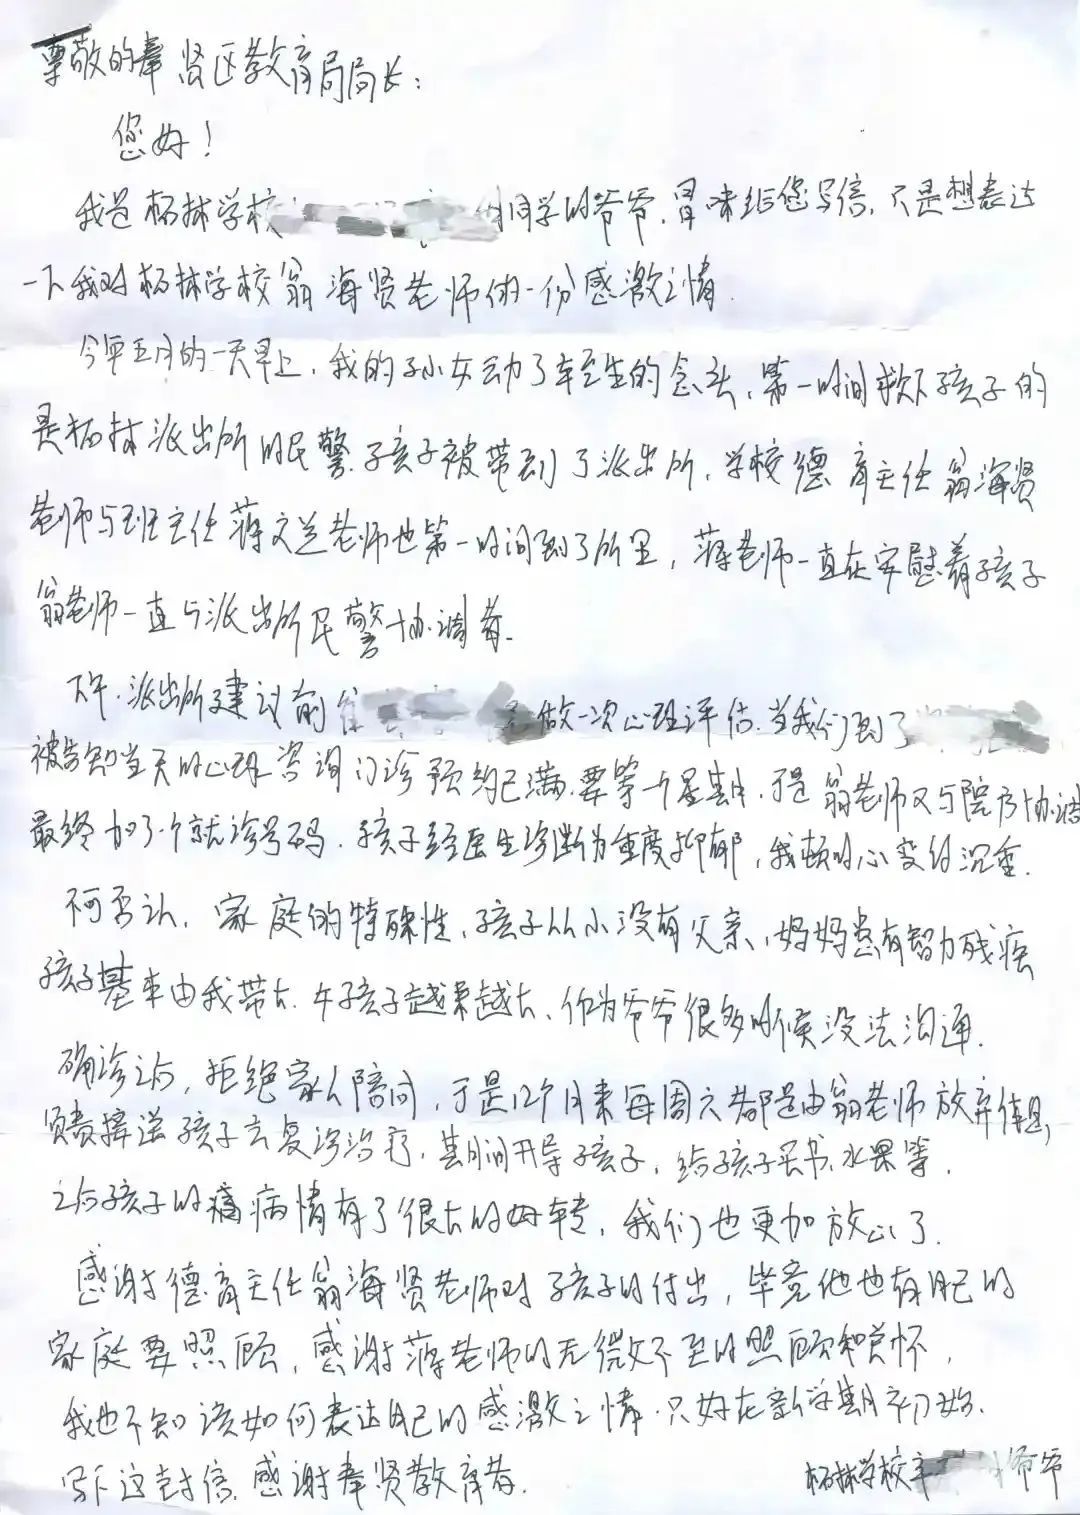 尊敬的奉贤区教育局局长：
您好！
我是柘林学校同学的爷爷，冒昧给您写信，只是想表达
一下我对柘林学校翁海贤老师的一份感激之情。
今年五月的一天早上，我的孙女动了轻生的念头，第一时间救下孩子的
是柘林派出所的民警，孩子被带到了派出所，学校德育主任翁海贤
老师与班主任蒋文兰老师也第一时间到了所里，蒋老师一直在安慰着孩子
翁老师一直与派出所民警协调着。
下午，派出所建议前做一次心理评估，当我们到了
被告知当天的心理咨询门诊预约已满，要等一个星期，于是翁老师又与院方协调
最终加了个就诊号码，孩子经医生诊断为重度抑郁，我顿时心变得沉重。
不可否认，家庭的特殊性，孩子从小没有父亲，妈妈患有智力残疾
孩子基本由我带大，女孩子越来越大，作为爷爷很多时候没法沟通。
确诊之后，拒绝家人陪同，于是12个月来每周六都是由翁老师放弃休息，
负责接送孩子去复诊治疗，期间开导孩子，给孩子买书、水果等，
之后孩子的病情有了很大的好转，我们也更加放心了。
感谢德育主任翁海贤老师对孩子的付出，毕竟他也有自己的
家庭要照顾，感谢蒋老师的无微不至的照顾和关怀，
我也不知该如何表达自己的感激之情，只好在新学期初始，
写下这封信，感谢奉贤教育者。
柘林学校爷爷